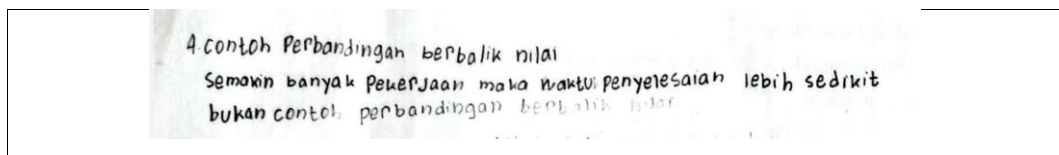 4. contoh Perbandingan berbalik nilai
Semakin banyak Pekerjaan maka waktu penyelesaian lebih sedikit
bukan contoh perbandingan berbalik nilai